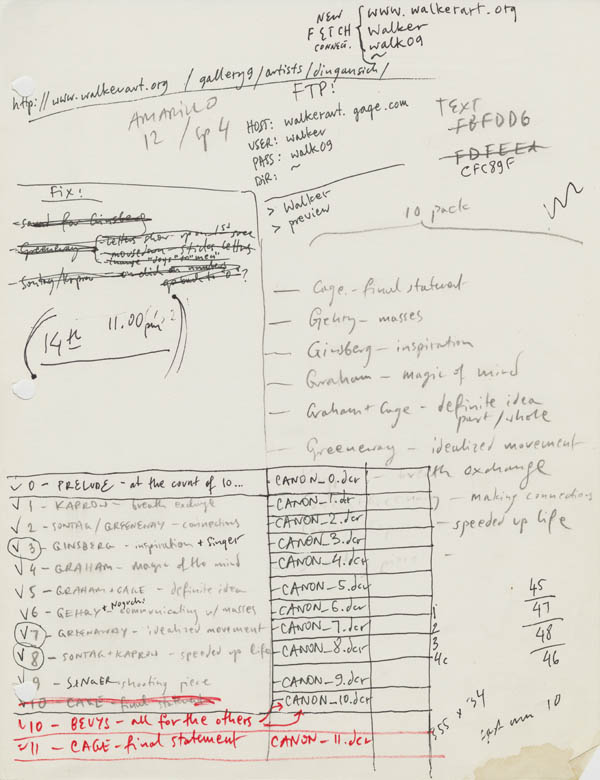 NEW www.walkerart.org
FETCH Walker
CONNECT. walk09
http://www.walkerart.org/gallery9/artists/dingansich/
AMARILLO
12 / cp 4
FTP!
HOST: walkerart.gage.com
USER: walker
PASS: walk09
DIR: ~
> Walker
> preview
TEXT
FBFDD6
FDFEEA
CFC89F
Fix!
sound for Ginsberg
Greenaway - letters show up on 1st
- mousedown - sticks letters
- change "days" to "men"
Sontag/Kaprow - on click on numbers
go back to "0"?
14th 11.00 pm
10 pack
— Cage - final statement
— Gehry - masses
— Ginsberg - inspiration
— Graham - magic of mind
— Graham + Cage - definite idea
part/whole
Greeneway - idealized movement
breath exchange
- making connections
- speeded up life
✓ 0 - PRELUDE - at the count of 10... CANON_0.dcr
✓ 1 - KAPROW - breath exchange CANON_1.dcr
✓ 2 - SONTAG / GREENEWAY - connections CANON_2.dcr
✓ 3 - GINSBERG - inspiration + Singer CANON_3.dcr
✓ 4 - GRAHAM - magic of the mind CANON_4.dcr
✓ 5 - GRAHAM + CAGE - definite idea CANON_5.dcr
✓ 6 - GEHRY + Noguchi communicating w/ masses CANON_6.dcr
✓ 7 - GREENAWAY - idealized movement CANON_7.dcr
✓ 8 - SONTAG + KAPROW - speeded up life CANON_8.dcr
✓ 9 - SINGER - shooting piece CANON_9.dcr
10 - CAGE - final statement CANON_10.dcr
✓ 10 - BEUYS - all for the others
- 11 - CAGE - final statement CANON_11.dcr
1
2
3
4c
45
47
48
46
355 x 34
10